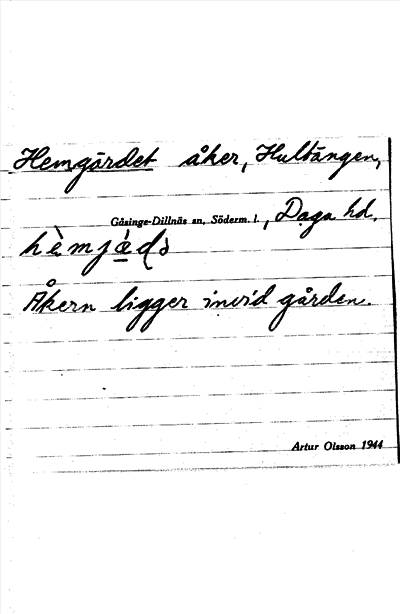 Hemgärdet åker, Hultängen,
Gåsinge-Dillnäs sn, Söderm. l., Daga hd.
Åkern ligger invid gården.
Artur Olsson 1944